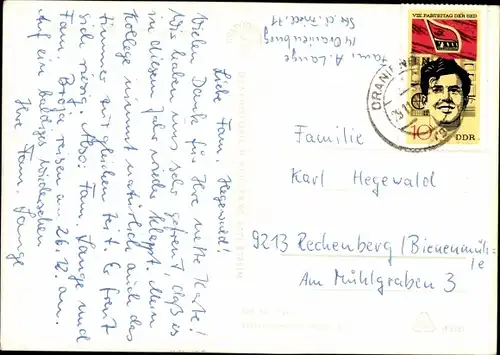 Liebe Fam. Hegewald!
Vielen Dank für Ihre nette Karte!
Wir haben uns sehr gefreut, daß es
in diesem Jahr wieder klappt. Mein
Kollege nimmt natürlich auch das
Zimmer zur gleichen Zeit. Er freut
sich riesig. Also: Fam. Lange und
Fam. reisen am 26.12. an.
Auf ein baldiges Wiedersehen
Ihre Fam. Lange
Fam. A. Lange
14 Oranienburg
Str. d. Fried. 11
VIII. PARTEITAG DER SED
10
DDR
ORANIENBURG
Familie
Karl Hegewald
9213 Rechenberg/Bienenmüh-
le
Am Mühlgraben 3